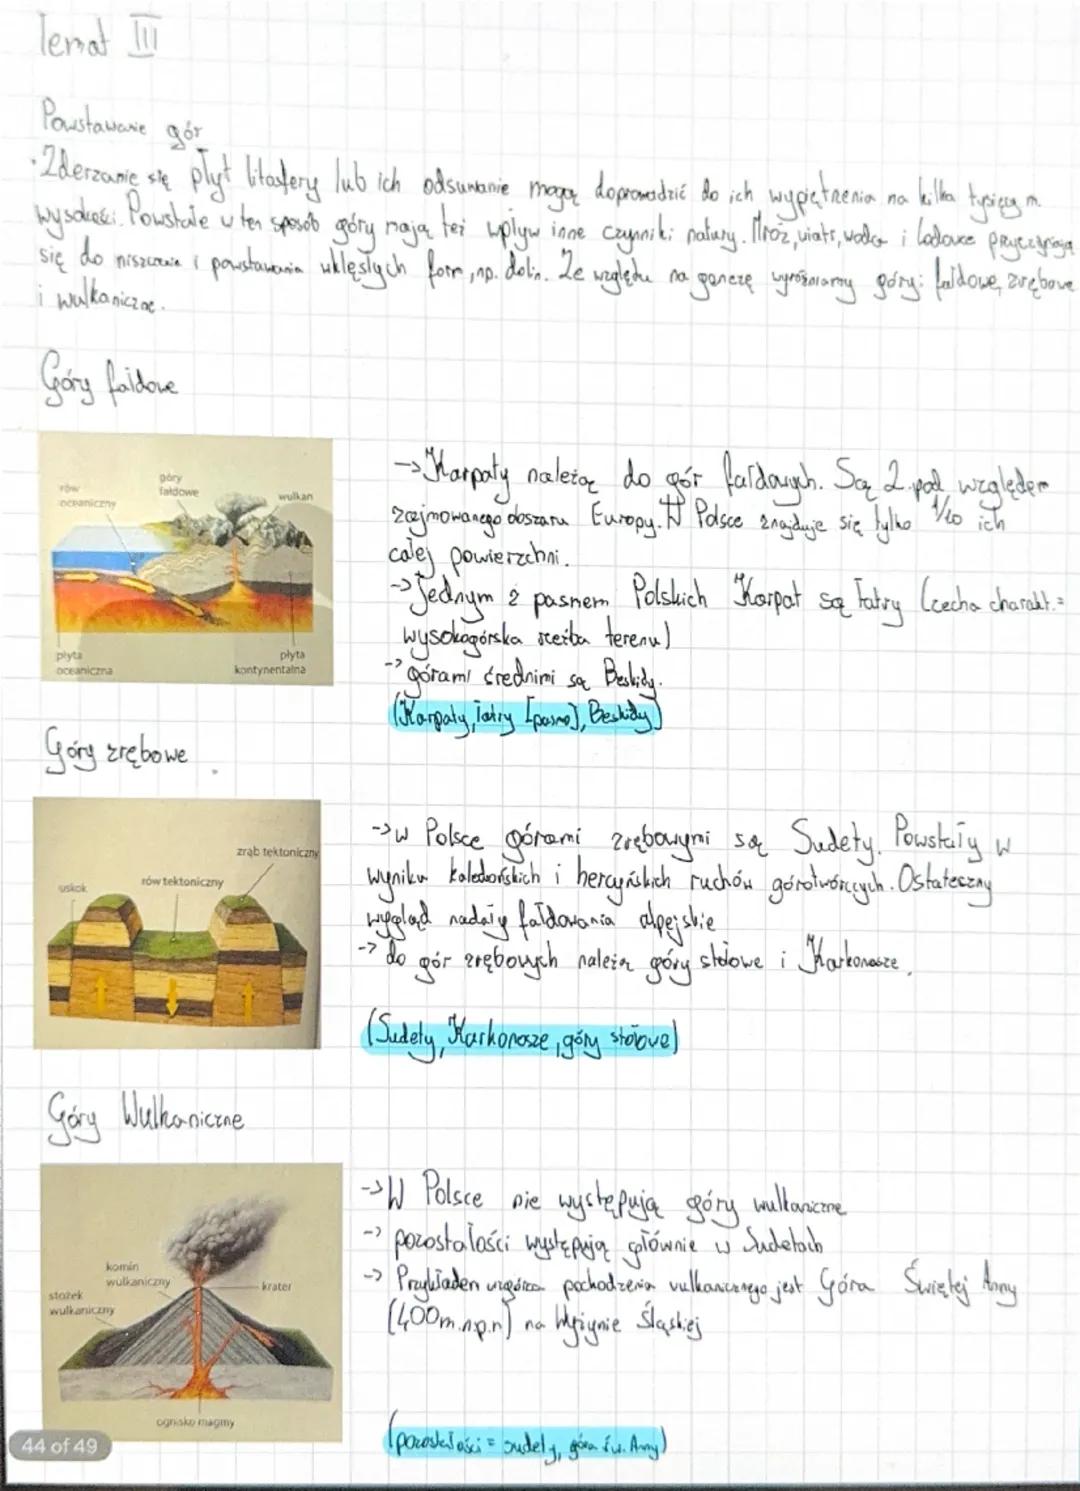 Temat III
Powstawanie gór
· Zderzanie się płyt litosfery lub ich odsuwanie mogą doprowadzić do ich wypiętrzenia na kilka tysięcy m.
wysokości. Powstałe w ten sposób góry mają też wpływ inne czynniki natury. Mróz, wiatr, woda i lodowce przyczyniają
się do niszczenia i powstawania wklęsłych form, np. dolin. Ze względu na genezę wyróżniamy góry: fałdowe, zrębowe
i wulkaniczne.
Góry fałdowe
rów
oceaniczny
góry
fałdowe
wulkan
płyta
oceaniczna
płyta
kontynentalna
-> Karpaty należą do gór fałdowych. Są 2. pod względem
zajmowanego obszaru Europy. W Polsce znajduje się tylko 1/10 ich
całej powierzchni.
-> Jednym z pasmem Polskich Karpat są Tatry (cecha charakt.=
wysokogórska rzeźba terenu)
-> górami średnimi są Beskidy.
(Karpaty, Tatry [pasmo], Beskidy)
Góry zrębowe
uskok
rów tektoniczny
zrąb tektoniczny
-> w Polsce górami zrębowymi są Sudety. Powstały w
wyniku kaledońskich i hercyńskich ruchów górotwórczych. Ostateczny
wygląd nadały fałdowania alpejskie
-> do gór zrębowych należą góry stołowe i Karkonosze.
(Sudety, Karkonosze, góry stołowe)
Góry Wulkaniczne
komin
wulkaniczny
krater
stożek
wulkaniczny
ognisko magmy
-> W Polsce nie występują góry wulkaniczne
-> pozostałości występują głównie w Sudetach
-> Przykładem wzgórza pochodzenia wulkanicznego jest Góra Świętej Anny
(400m.n.p.m) na Wyżynie Śląskiej
(pozostałości = sudety, góra św. Anny)
44 of 49